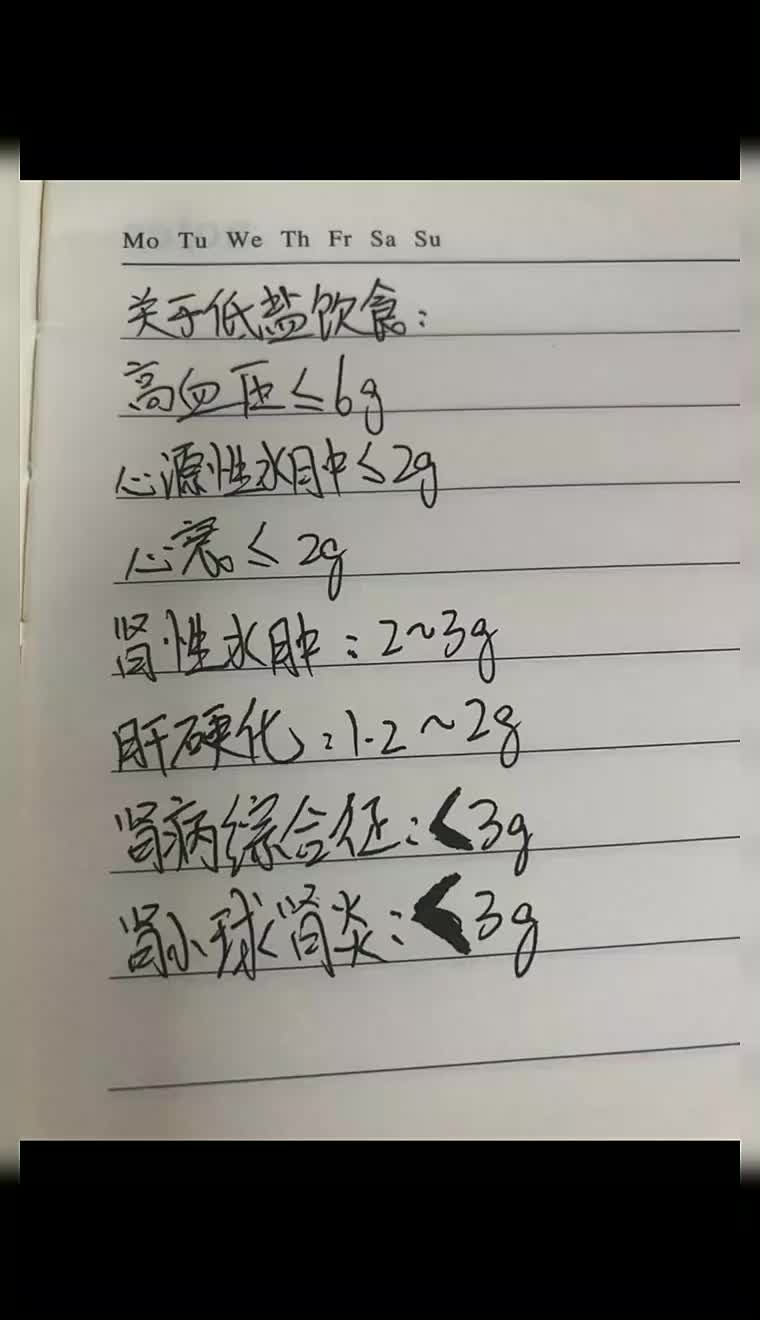 Mo Tu We Th Fr Sa Su
关于低盐饮食:
高血压≤6g
心源性水肿≤2g
心衰≤2g
肾性水肿:2~3g
肝硬化:1.2~2g
肾病综合征:<3g
肾小球肾炎:<3g